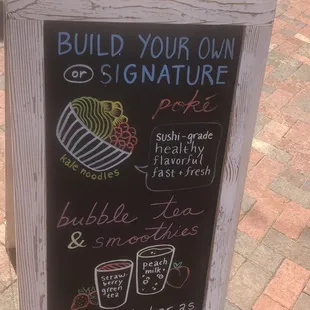 BUILD YOUR OWN
or SIGNATURE
poké
sushi-grade
healthy
flavorful
fast + fresh
kale noodles
bubble tea
& smoothies
straw
berry
green
tea
peach
milk
as